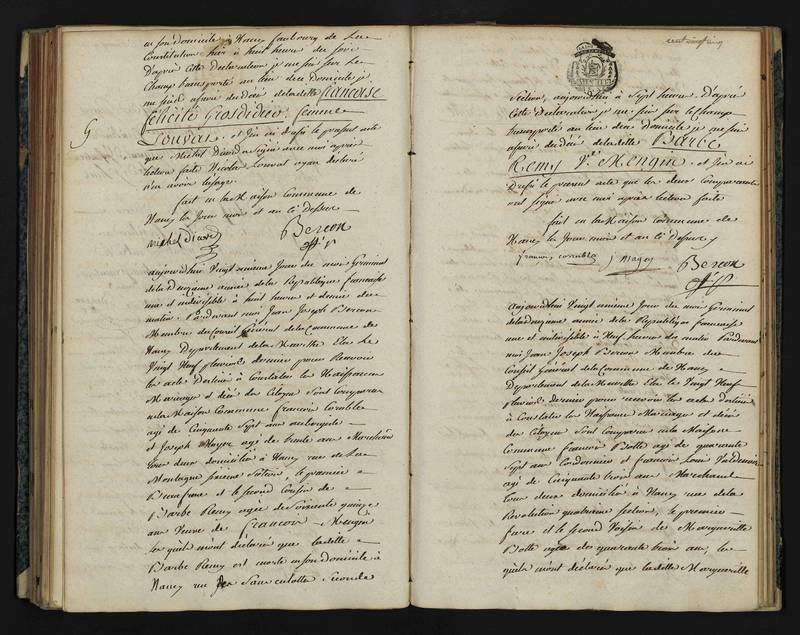 en son domicile à Nancy faubourg de la
Constitution hier à huit heure du soir
D'après cette declaration je me suis sur le
Champ transporté au lieu de ce domicile je
me suis assuré du décé de ladelle francoise
félicité Grosdidier femme
Louvat, et j'en ai dressé le present acte
que Michel Diard a signé avec moi après
lecture faite Nicolas Louvat ayant declaré
n'en avoir l'usage
fait en la Maison Commune de
Nancy les Jour mois et an ci dessus
michel diard Bercon
aujourd'hui Vingt unieme Jour du mois Germinal
de la deuxieme année de la Republique francaise
une et indivisible à huit heure et demie du
matin. Pardevant moi Jean Joseph Bercon
Membre du Conseil General de la Commune de
Nancy Departement de la Meurthe Elus le
Vingt Neuf pluviose dernier pour Recevoir
les acte Destiné à Constater les Naissances
Mariage et décé des Citoyen Sont Comparus
en la Maison Commune francois
agé de Cinquante Sept ans
et Joseph agé de trente ans
tous deux domiciliés à Nancy rue de la
Montagne Section, le premier
et le second Cousin de
Barbe Remy agée de Soixante quinze
ans Veuve de francois Mengin
lesquels m'ont déclaré que ladelle
Barbe Remy est morte en son domicile à
Nancy rue des Sans culotte Seconde
Section, aujourd'hui à Sept heure. D'après
cette declaration je me suis sur le Champ
transporté au lieu de ce domicile je me suis
assuré du décé de ladelle Barbe
Remy Ve Mengin et j'en ai
Dressé le present acte que les deux Comparants
ont signé avec moi après lecture faite
fait en la Maison Commune de
Nancy les Jour mois et an ci dessus
francois J Bercon
aujourd'hui Vingt unieme Jour du mois Germinal
de la deuxieme année de la Republique francaise
une et indivisible à Neuf heures du matin Pardevant
moi Jean Joseph Bercon Membre du
Conseil General de la Commune de Nancy
Departement de la Meurthe Elus le Vingt Neuf
pluviose Dernier pour recevoir les acte destiné
à Constater les Naissance Mariage et décé
des Citoyen Sont Comparus en la Maison
Commune francois Botte agé de quarante
Sept ans Cordonnier et francois Louis
agé de Cinquante trois ans Marchand
tous deux domiciliés à Nancy rue de la
Revolution quatrieme Section, le premier
frere et le second Voisin de Marguerite
Botte agée de quarante trois ans, les
quels m'ont déclaré que ladelle Marguerite